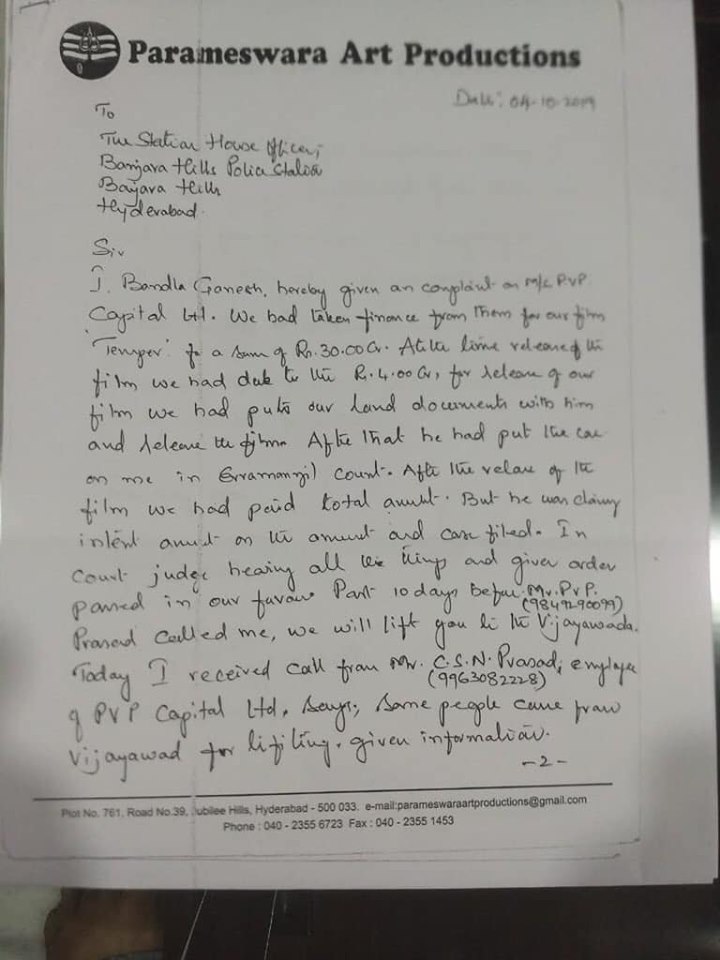 Parameswara Art Productions
Date: 04-10-2019
To
The Station House Officer,
Banjara Hills Police Station
Banjara Hills
Hyderabad.
Sir
I, Bandla Ganesh, hereby given an complaint on M/s PVP
Capital Ltd. We had taken finance from them for our film
'Temper' for a sum of Rs. 30.00 Cr. At the time release of the
film we had due to the Rs. 4.00 Cr, for release of our
film we had put our land documents with him
and release the film. After that he had put the case
on me in Erramanzil Court. After the release of the
film we had paid total amount. But he was claimy
intent amount on the amount and case filed. In
Court judge hearing all the things and given order
passed in our favour Past 10 days before Mr. PVP.
(9849290099)
Prasad called me, we will lift you to the Vijayawada.
Today I received call from Mr. C.S.N. Prasad, employee
(9963082228)
of PVP Capital Ltd, says, some people came from
Vijayawad for lifiting, given information.
-2-
Plot No. 761, Road No.39, Jubilee Hills, Hyderabad - 500 033. e-mail:parameswaraartproductions@gmail.com
Phone : 040 - 2355 6723 Fax : 040 - 2355 1453